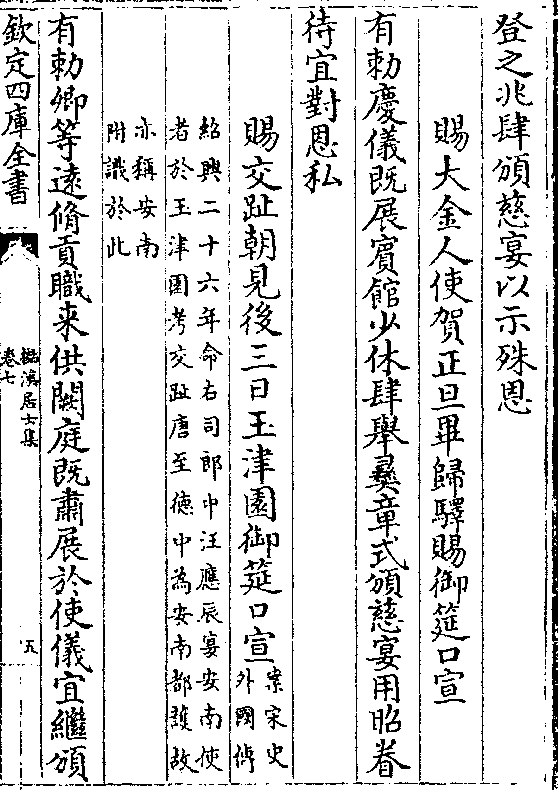 登之兆肆頒慈宴以示殊恩
賜大金人使賀正旦畢歸驛賜御筵口宣
有勅慶儀既展賓館少休肆舉彞章式頒慈宴用昭眷
待宜對恩私
賜交趾朝見後三日玉津園御筵口宣
案宋史
外國傳
紹興二十六年命右司郎中汪應辰宴安南使
者於玉津園考交趾唐至德中為安南都護故
亦稱安南
附識於此
有勅卿等逺脩貢職来供闕庭既肅展於使儀宜繼頒
欽定四庫全書
卷七
居士集
五